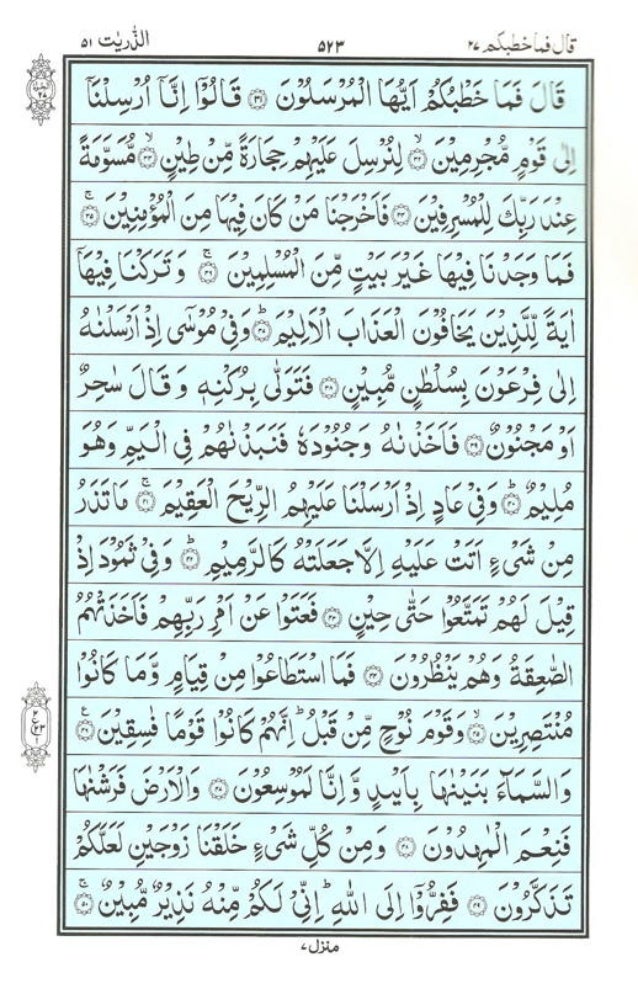 قال فما خطبكم ٢٧ ٥٢٣ الذّٰريٰت ٥١
قَالَ فَمَا خَطْبُكُمْ اَيُّهَا الْمُرْسَلُوْنَ ﴿۳۱﴾ قَالُوْۤا اِنَّاۤ اُرْسِلْنَاۤ
اِلٰى قَوْمٍ مُّجْرِمِيْنَ ﴿۳۲﴾ۙ لِنُرْسِلَ عَلَيْهِمْ حِجَارَةً مِّنْ طِيْنٍ ﴿۳۳﴾ۙ مُّسَوَّمَةً
عِنْدَ رَبِّكَ لِلْمُسْرِفِيْنَ ﴿۳۴﴾ فَاَخْرَجْنَا مَنْ كَانَ فِيْهَا مِنَ الْمُؤْمِنِيْنَ ﴿۳۵﴾ۚ
فَمَا وَجَدْنَا فِيْهَا غَيْرَ بَيْتٍ مِّنَ الْمُسْلِمِيْنَ ﴿۳۶﴾ۚ وَتَرَكْنَا فِيْهَاۤ
اٰيَةً لِّلَّذِيْنَ يَخَافُوْنَ الْعَذَابَ الْاَلِيْمَ ﴿۳۷﴾ؕ وَفِيْ مُوْسٰۤى اِذْ اَرْسَلْنٰهُ
اِلٰى فِرْعَوْنَ بِسُلْطٰنٍ مُّبِيْنٍ ﴿۳۸﴾ فَتَوَلّٰى بِرُكْنِهٖ وَقَالَ سٰحِرٌ
اَوْ مَجْنُوْنٌ ﴿۳۹﴾ فَاَخَذْنٰهُ وَجُنُوْدَهٗ فَنَبَذْنٰهُمْ فِى الْيَمِّ وَهُوَ
مُلِيْمٌ ﴿۴۰﴾ؕ وَفِيْ عَادٍ اِذْ اَرْسَلْنَا عَلَيْهِمُ الرِّيْحَ الْعَقِيْمَ ﴿۴۱﴾ۚ مَا تَذَرُ
مِنْ شَيْءٍ اَتَتْ عَلَيْهِ اِلَّا جَعَلَتْهُ كَالرَّمِيْمِ ﴿۴۲﴾ؕ وَفِيْ ثَمُوْدَ اِذْ
قِيْلَ لَهُمْ تَمَتَّعُوْا حَتّٰى حِيْنٍ ﴿۴۳﴾ فَعَتَوْا عَنْ اَمْرِ رَبِّهِمْ فَاَخَذَتْهُمُ
الصّٰعِقَةُ وَهُمْ يَنْظُرُوْنَ ﴿۴۴﴾ فَمَا اسْتَطَاعُوْا مِنْ قِيَامٍ وَّمَا كَانُوْا
مُنْتَصِرِيْنَ ﴿۴۵﴾ۙ وَقَوْمَ نُوْحٍ مِّنْ قَبْلُؕ اِنَّهُمْ كَانُوْا قَوْمًا فٰسِقِيْنَ ﴿۴۶﴾
وَالسَّمَآءَ بَنَيْنٰهَا بِاَيْىدٍ وَّاِنَّا لَمُوْسِعُوْنَ ﴿۴۷﴾ وَالْاَرْضَ فَرَشْنٰهَا
فَنِعْمَ الْمٰهِدُوْنَ ﴿۴۸﴾ وَمِنْ كُلِّ شَيْءٍ خَلَقْنَا زَوْجَيْنِ لَعَلَّكُمْ
تَذَكَّرُوْنَ ﴿۴۹﴾ فَفِرُّوْۤا اِلَى اللّٰهِؕ اِنِّيْ لَكُمْ مِّنْهُ نَذِيْرٌ مُّبِيْنٌ ﴿۵۰﴾ۚ
منزل ٧